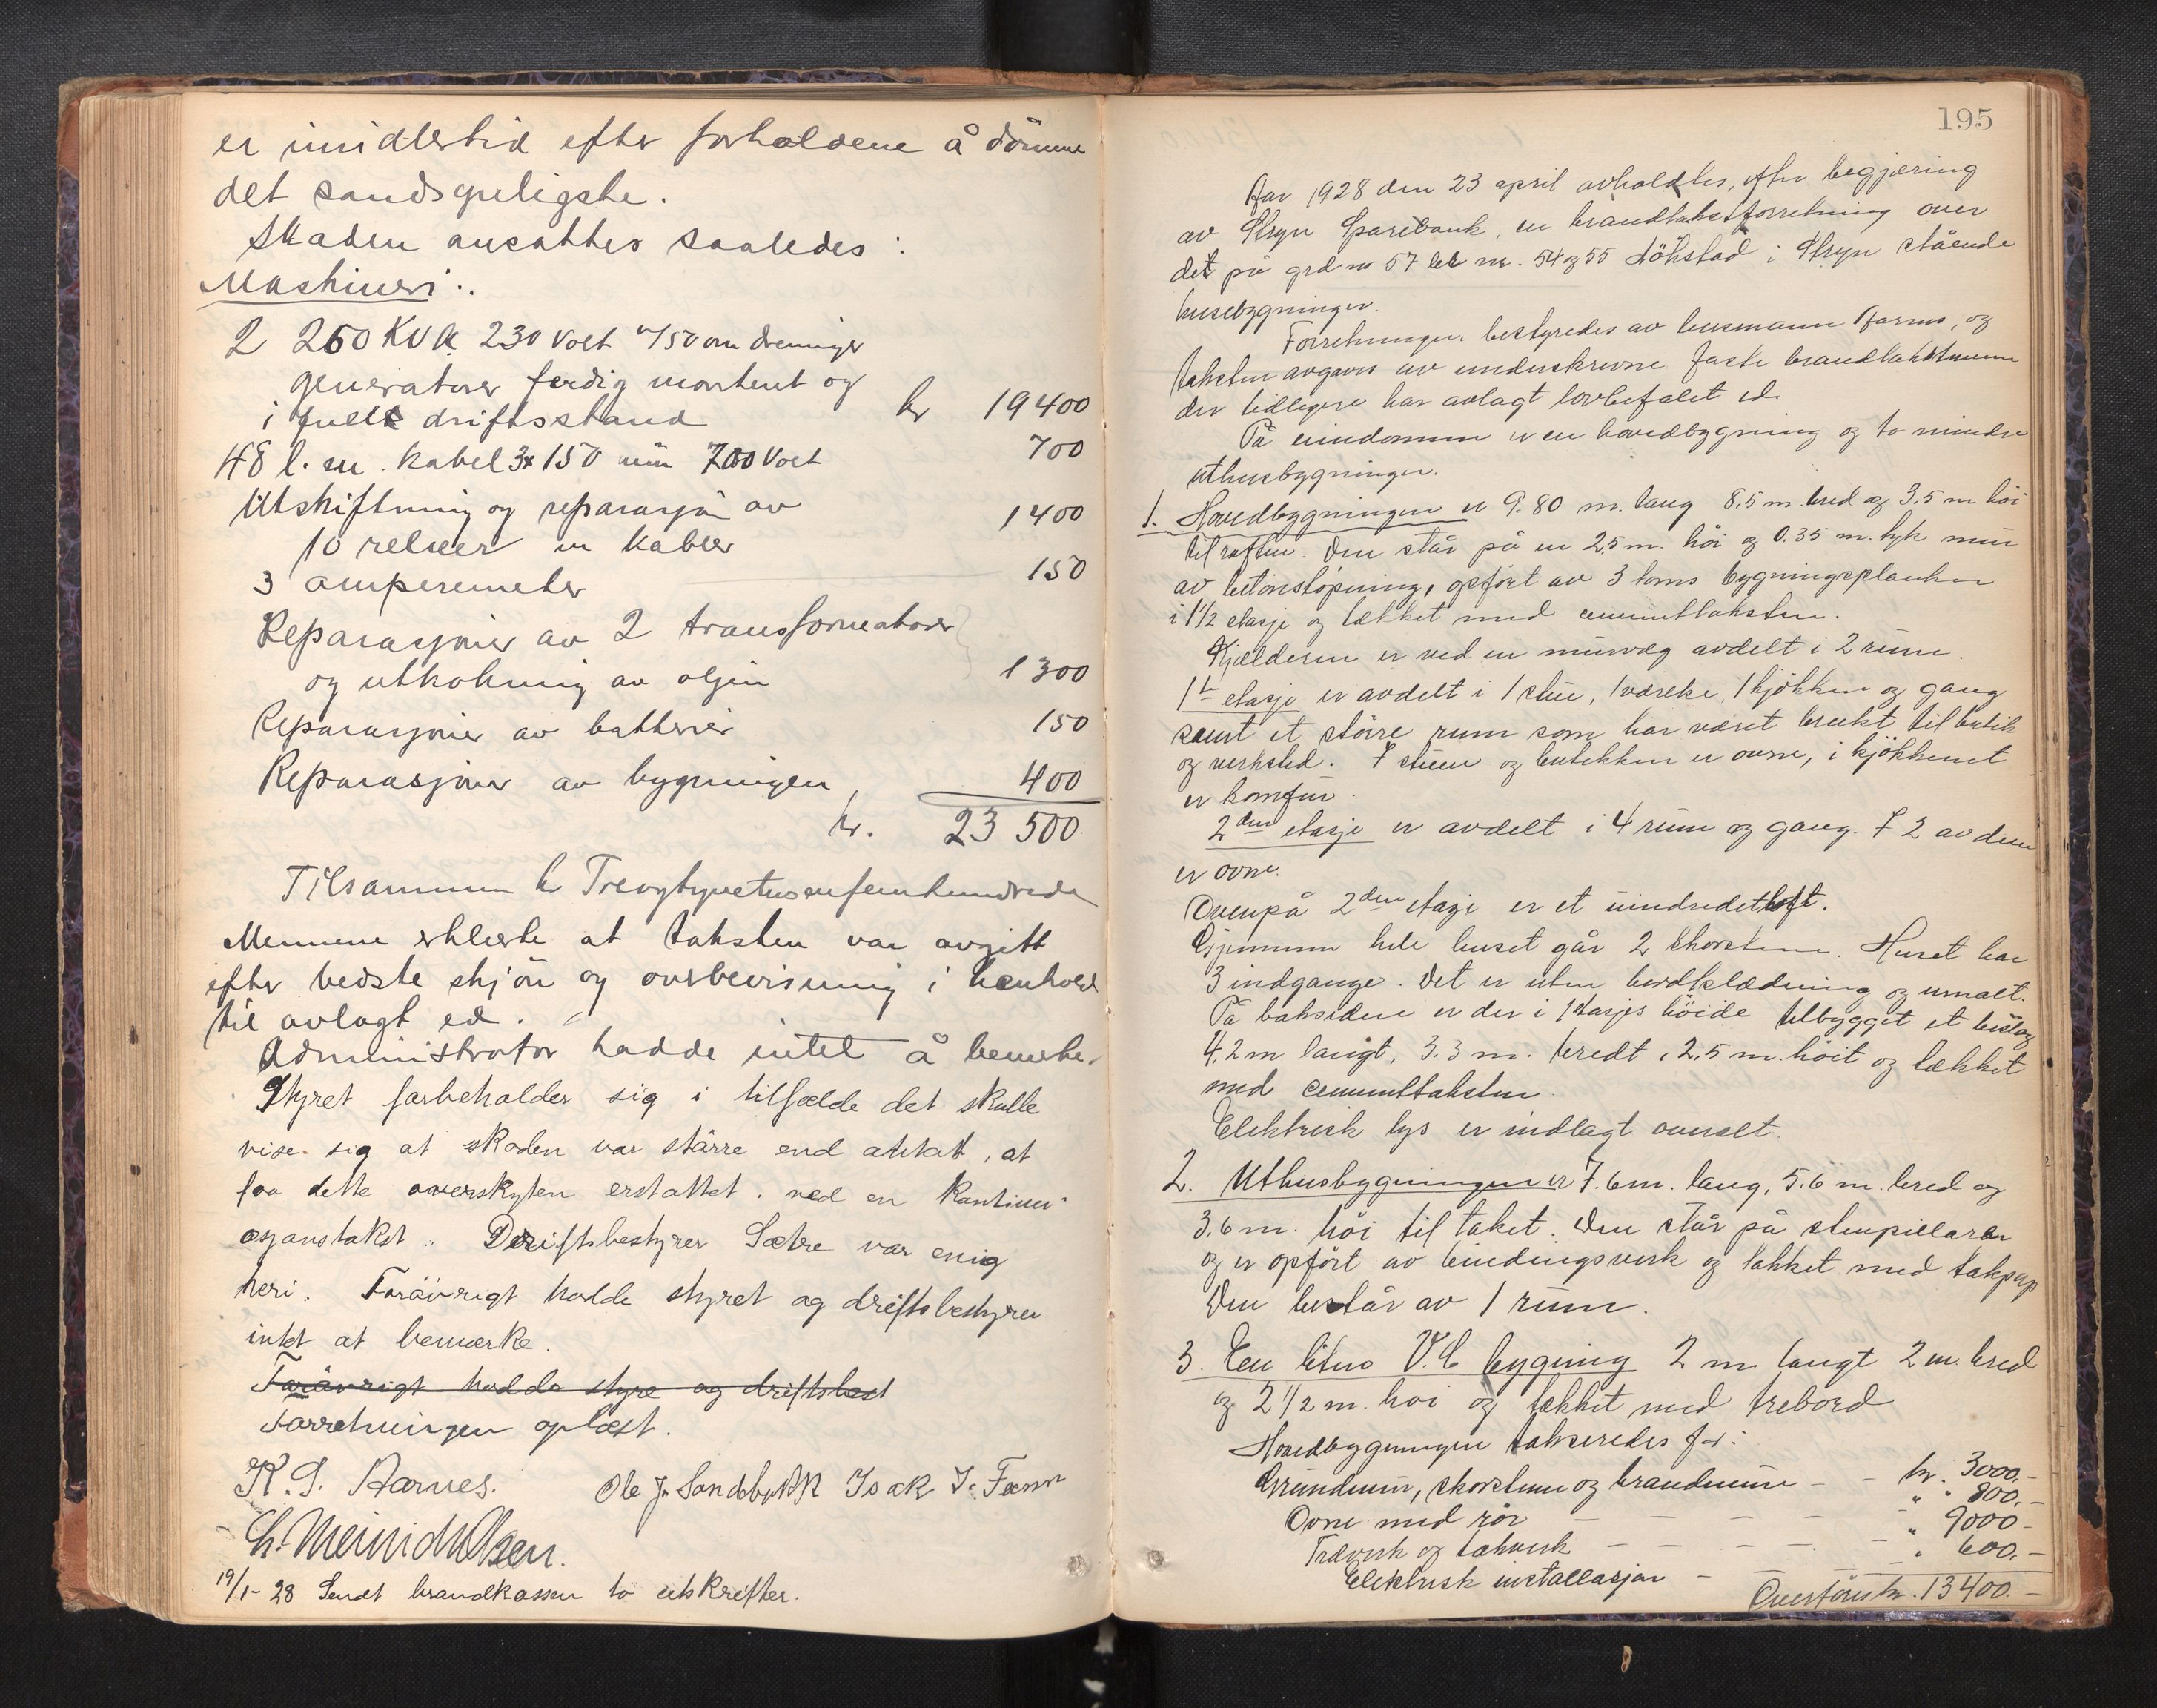 er imidlertid efter forholdene å dömme
det sandsynligste.
Skaden ansattes saaledes:
Maskineri:
2 260 KVA 230 Volt 750 omdreininger
generatorer ferdig montert og
i fuld driftsstand kr 19400
48 l. m. kabel 3x150 mm 700 Volt 700
Utskiftning og reparasjon av
10 releer m kabler 1400
3 amperemeter 150
Reparasjoner av 2 transformatorer
og utkokning av oljen 1300
Reparasjoner av batterier 150
Reparasjoner av bygningen, 400
kr. 23 500
Tilsammen kr Treogtyvetusenfemhundrede
Mennene erklærte at taksten var avgitt
efter bedste skjön og overbevisning i henhold
til avlagt ed.
Administrator hadde intet å bemerke.
Styret forbeholder sig i tilfælde det skulle
vise sig at skaden var större end antat, at
faa dette overskyten erstattet ved en
Driftsbestyrer Sætre var enig
heri. Forövrigt hadde styret og driftsbestyrer
intet at bemærke.
Forövrigt hadde styre og driftsbest
Forretningen oplæst.
K. S. Aarnes. Ole J. Sandsbakk Isak J.
Ch. Meinich Olsen.
19/1-28 Sendt brandkassen to utskrifter.
195
Aar 1928 den 23. april avholdtes, efter begjæring
av Stryn Sparebank, en brandtakstforretning over
det på grd nr 57 br nr. 54 og 55 Lökstad i Stryn stående
husebygninger.
Forretningen bestyredes av lensmann Aarnes, og
taksten avgaves av underskrevne faste brandtakstmenn
der tidligere har avlagt lovbefalet ed.
På eiendommen er en hovedbygning og to mindre
uthusbygninger.
1. Hovedbygningen er 9.80 m. lang 8,5 m. bred og 3.5 m höi
til raften. Den står på en 2,5 m. höi og 0.35 m. tyk mur
av betonstöpning, opfört av 3 toms bygningsplanker
i 1 1/2 etasje og tækket med cementtaksten.
Kjelderen er ved en murvæg avdelt i 2 rum.
1te etasje er avdelt i 1 stue, 1 værelse, 1 kjökken og gang
samt et större rum som har været brukt til butik
og verksted. I stuen og butikken er ovne, i kjökkenet
er komfur.
2den etasje er avdelt i 4 rum og gang. I 2 av dem
er ovne.
Ovenpå 2den etasje er et uindredet loft.
Gjennem hele huset går 2 skorstene. Huset har
3 indgange. Det er uten bordklædning og umalt.
På baksiden er der i 1 etasjes höide tilbygget et bislag
4,2 m langt, 3.3 m. bredt, 2,5 m. höit og tækket
med cementtaksten.
Elektrisk lys er indlagt overalt.
2. Uthusbygningen er 7.6 m. lang, 5.6 m. bred og
3,6 m. höi til taket. Den står på stenpillarer
og er opfört av bindingsverk og tækket med takpap
Den består av 1 rum.
3. En liten V.C. bygning 2 m langt 2 m. bred
og 2 1/2 m. höi og tækket med trebord
Hovedbygningen takseredes for:
Grundmur, skorstene og brandmure – kr. 3000.-
Ovne med rör – – – – " " 800.-
Træverk og takverk – – – – " 9000-
Elektrisk installasjon – – – " 600.-
Overföres kr. 13400.-